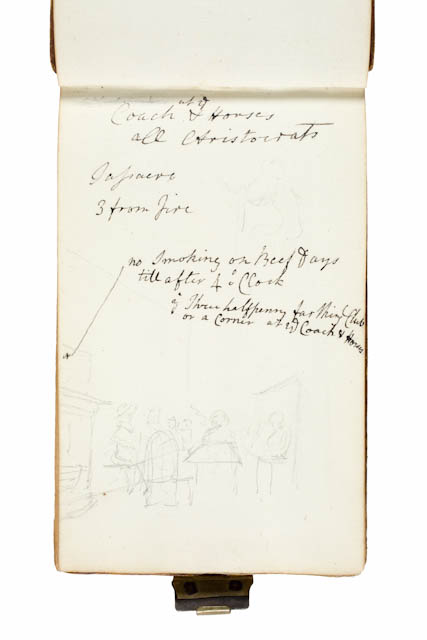 at ye
Coach & Horses
all Aristocrats
3 from Fire
no Smoking on Beef Days
till after 4 o'Clock
ye Three halfpenny farthing Club
or a Corner at ye Coach & Horses